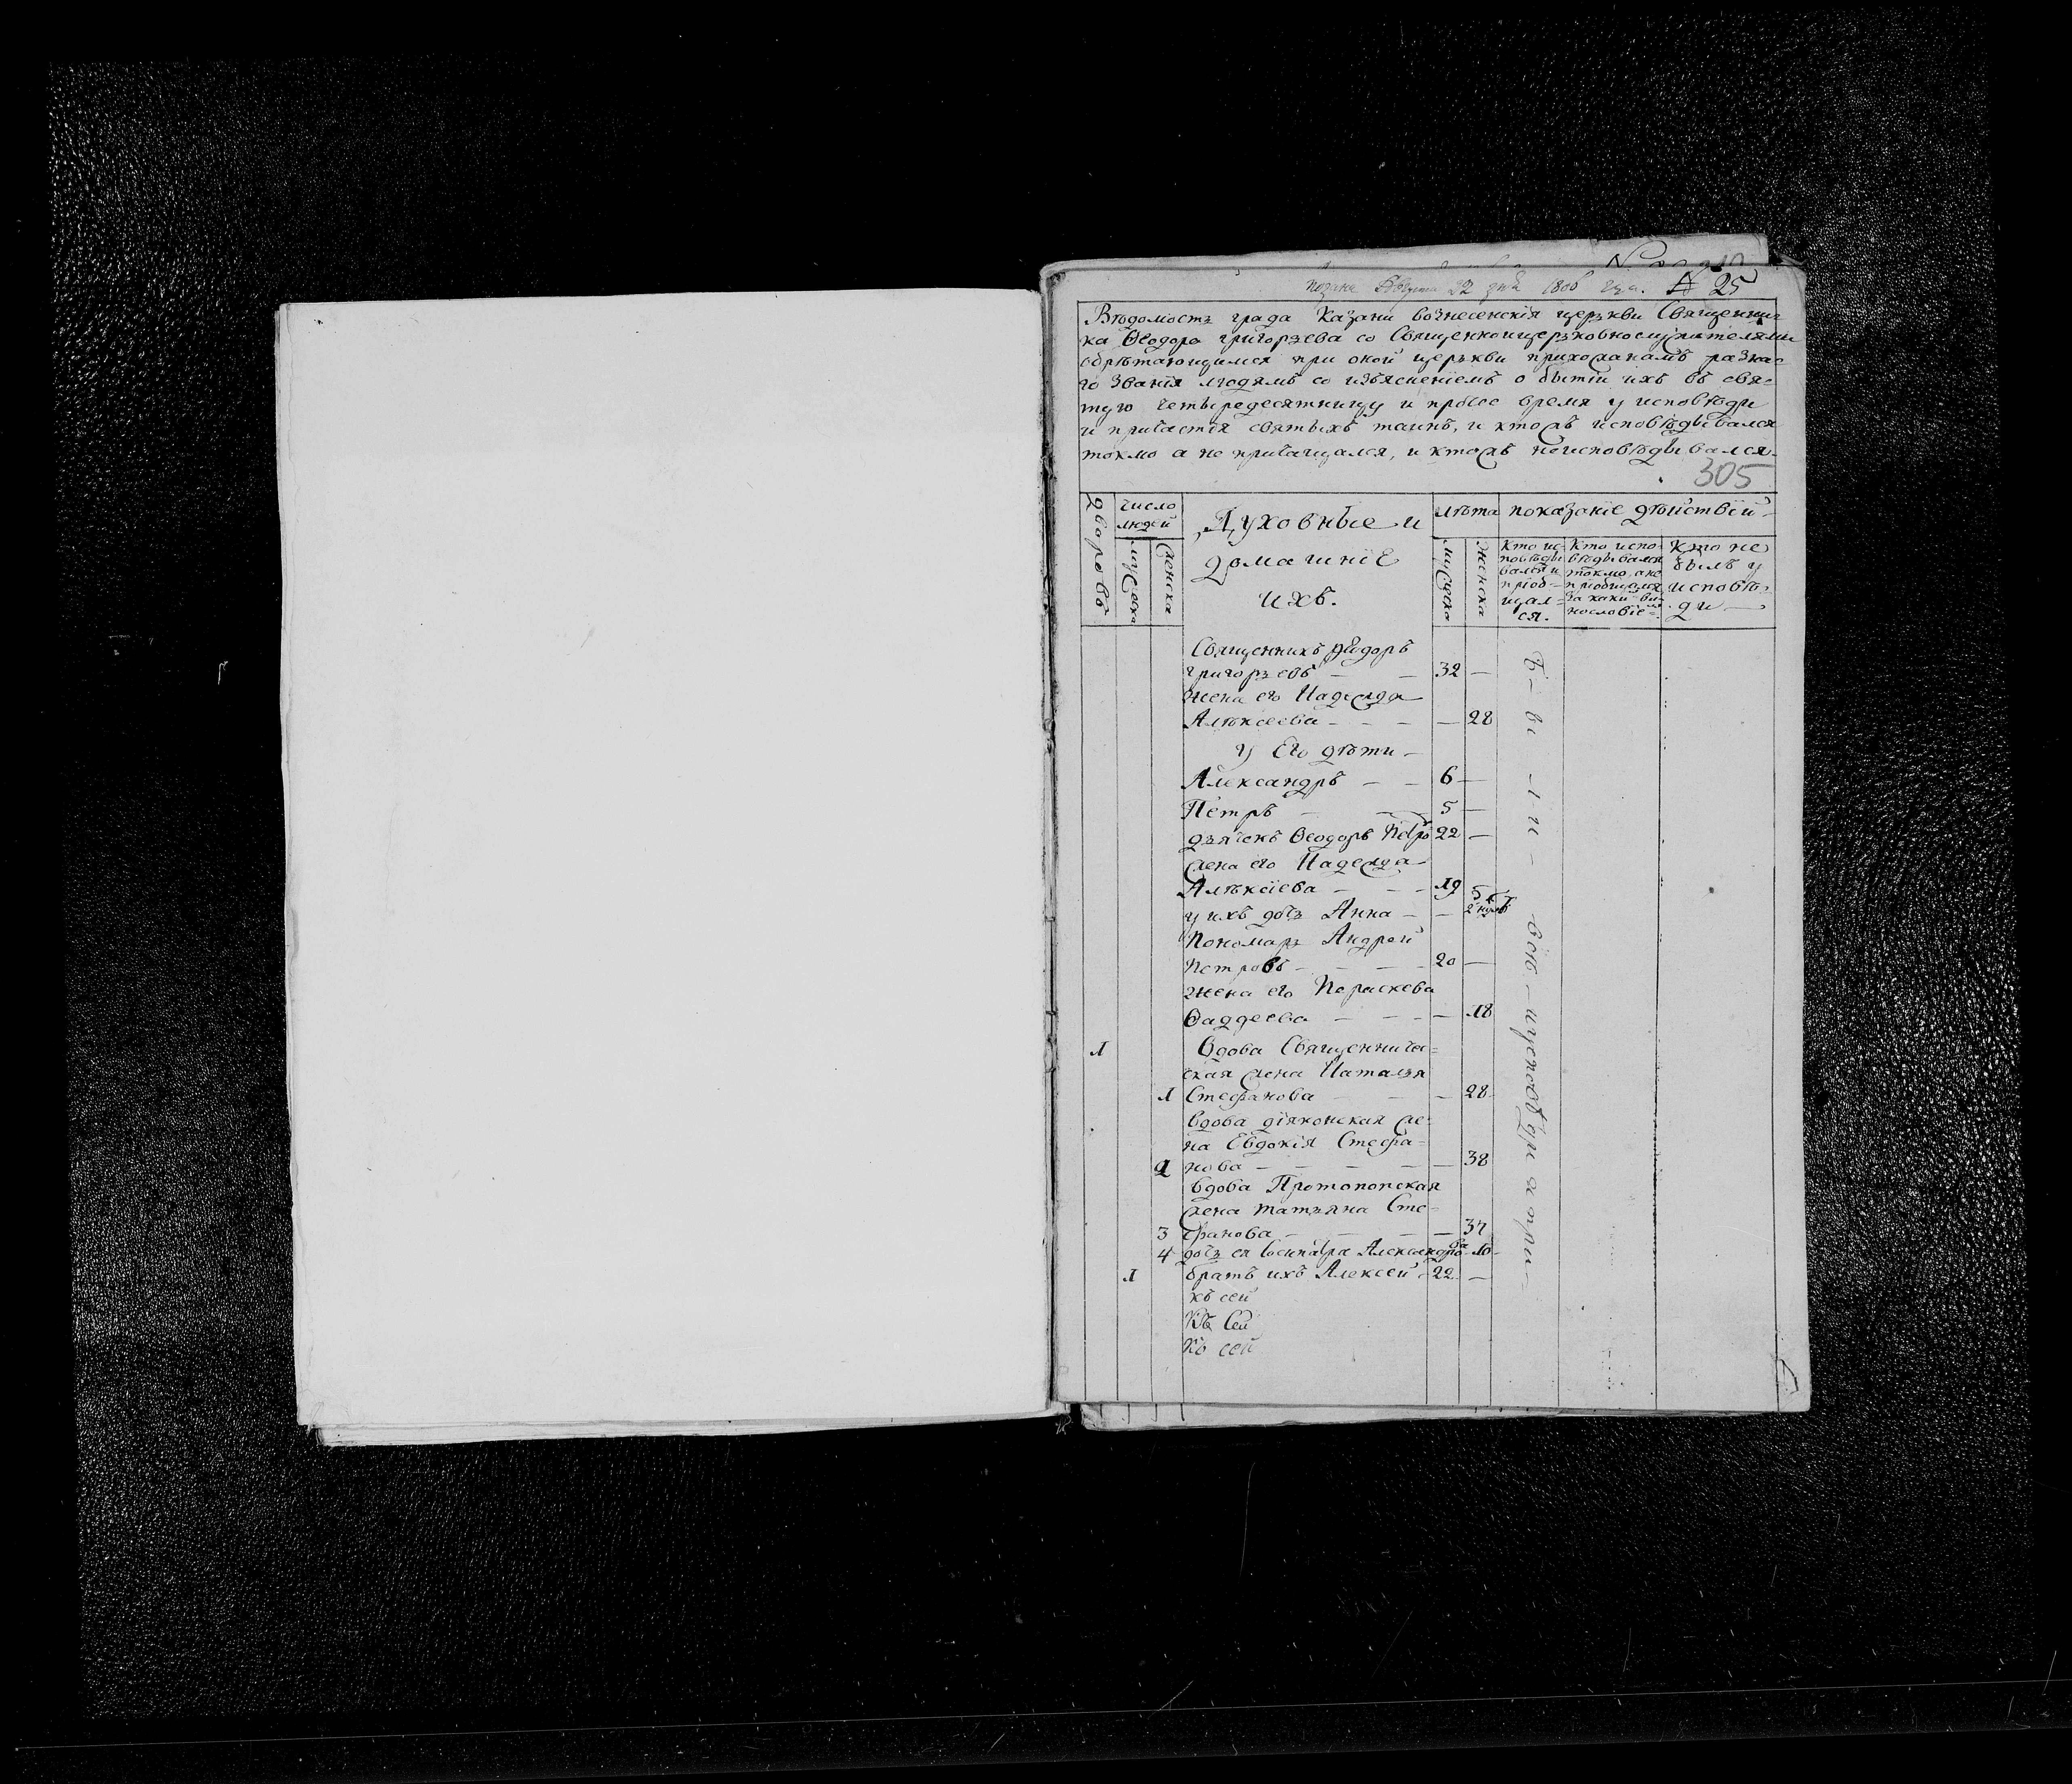 подана Августа 22 дня 1806 года. № 25
Вѣдомость града Казани вознесенскія церкви Священни=
ка Ѳеодора григорьева со Священноицерковнослужителями
обрѣтающимся при оной церкви прихожанамъ разна=
го званія людямъ со изъясненіемъ о бытіи ихъ въ свя=
тую четыредесятницу и протчее время у исповѣди
и причастія святыхъ таинъ, и ктожъ исповѣдывался
токмо а не причащался, и ктожъ неисповѣдывался.
305
Дворовъ
число людей
мужеска
женска
Духовные и
домашніе
ихъ.
лѣта
мужеска
женска
показаніе дѣйствій
Кто ис=
повѣды
вался и
пріоб=
щал=
ся.
Кто испо=
вѣдывался
токмо, а не
пріобщался
за какимъ ви
нословіемъ
Кто не
былъ у
исповѣ=
ди
Священникъ Ѳеодоръ
григорьевъ — — 32 —
жена его Надежда
Алѣксеева — — — — 28
у Его дѣти —
Александръ — — 6 —
Петръ — — 5 —
дьячекъ Ѳеодоръ Петро 22 —
жена его Надежда
Алѣксіева — — — 19
у ихъ дочь Анна — —
Пономарь Андрей
Петровъ — — — 20 —
жена его Параскева
Ѳаддеева — — — — 18
1 Вдова Священниче=
ская жена Наталья
1 Стефанова — — — 28
Вдова діяконская же=
на Евдокія Стефа=
2 нова — — — — — 38
Вдова Протопопская
жена татьяна Сте=
3 фанова — — — — — 37
4 дочь ея Клеопатра Александрова 10
1 братъ ихъ Алексей — 22 —
къ сей
Къ Сей
Ко сей
бы — ли — всѣ — у исповѣди и при —